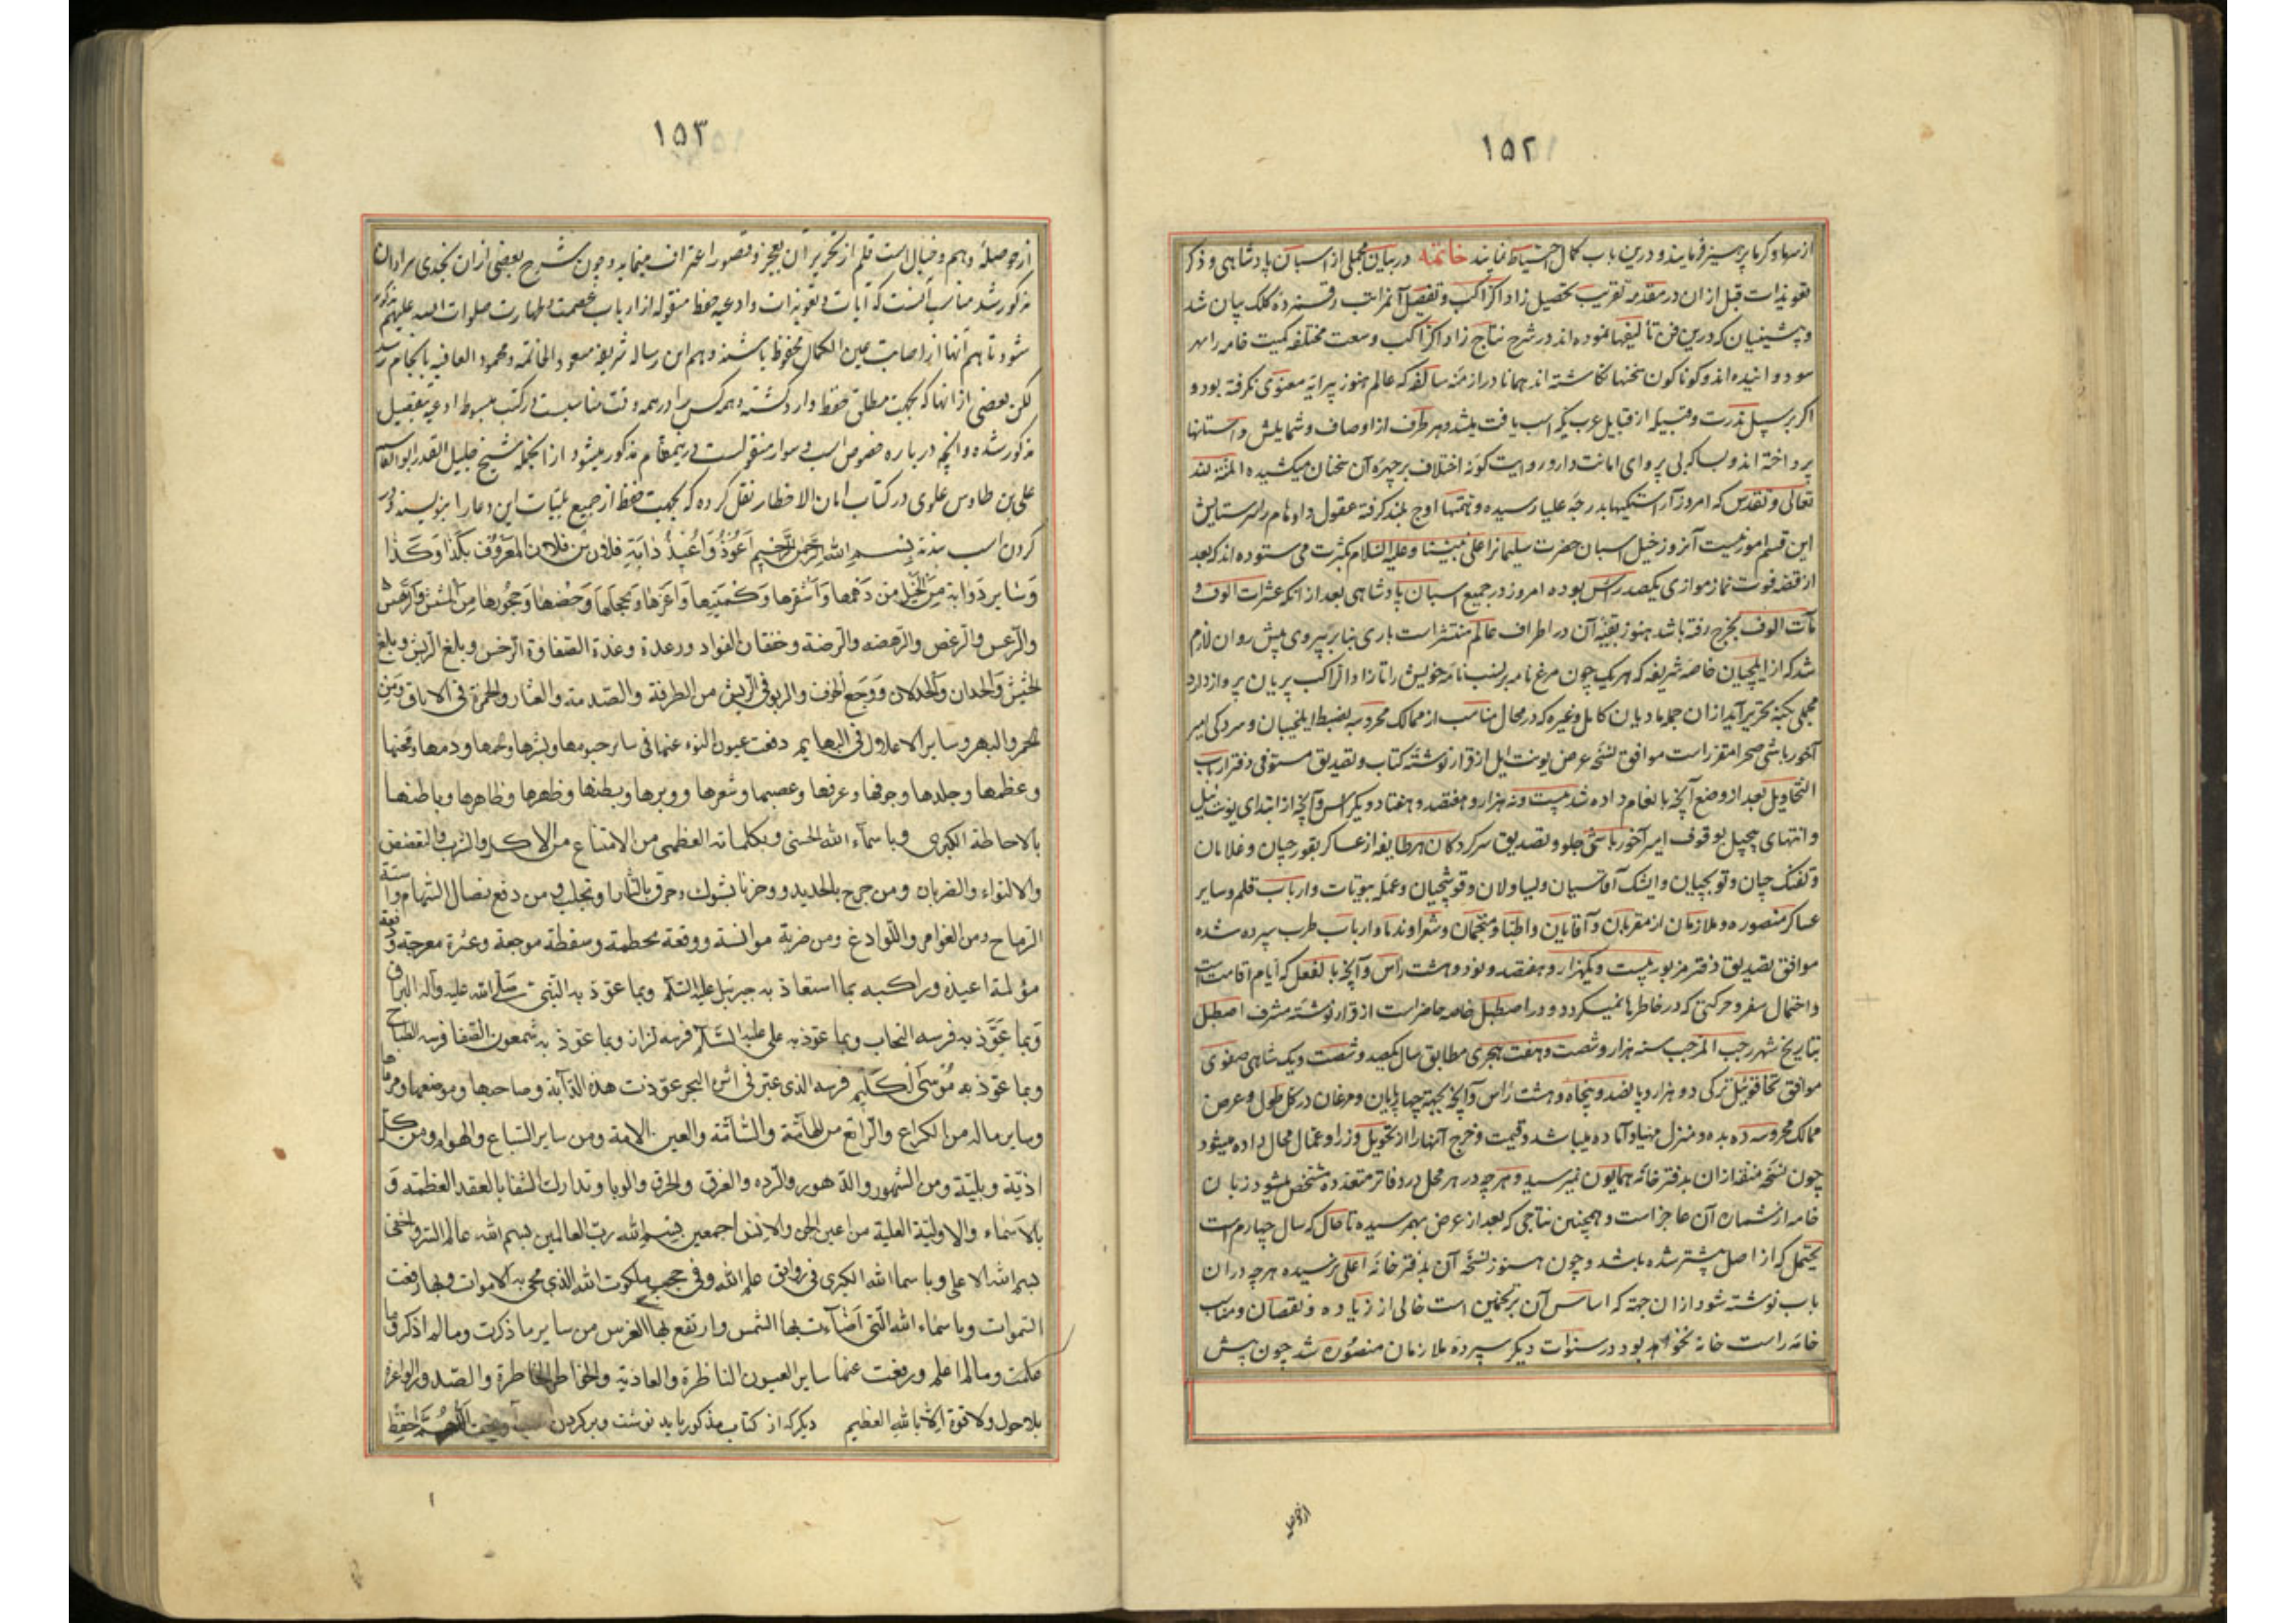 ١٥٢
از سرما و گرما پرهیز فرمایند و درین باب کمال احتیاط نمایند خاتمه در بیان مجملی از اسبان پادشاهی و ذکر
تعویذات قبل ازان در مقدمه تقریب تحصیل زاد اکراکب و تفصیل آنمراتب رقمزده کلک بیان شد
و پیشینیان که درین فن تألیفها نموده اند در شرح نتاج زاد اکراکب وسعت مختلفه کمیت خامه را سر
سو دوانیده اند و کوناکون سخنها نکاشته اند همانا در ازمنه سالفه که عالم هنوز پیرایه معنوی نکرفته بود و
اکر بر سبیل ندرت و قبیله از قبایل عرب یک اسب یافت میشد هر طرف از اوصاف و شمایلش داستانها
پرداخته اند و بسا که بی پروای امانت دار و روایت کونه اختلاف بر چهره آن سخنان میکشیده المنة لله
تعالی و تقدس که امروز آراستکیها بدرجه علیا رسیده و همتها اوج بلند کرفته عقول و اوهام را سر ستایش
این قسم امور نیست آنروز خیل اسبان حضرت سلیمانرا علی نبینا و علیه السلام بکثرت می ستوده اند که بعد
از قصه فوت نماز موازی یکصد راس بوده امروز در جمیع اسبان پادشاهی بعد از آنکه عشرات الوف و
مآت الوف بخرج رفته باشد هنوز بقیه آن در اطراف عالم منتشر است باری بنا بر پیروی پیش روان لازم
شد که از ایلچیان خاصه شریفه که هر یک چون مرغ نامه بر نسب نامه خویش را تا زاد الراکب بر بان پرواز دارد
مجملی بکتبه تحریر آید ازان جمله مادیان کابل و غیره که در محال مناسب از ممالک محروسه بضبط ایلخیبان و سرکردکی امیر
آخور باشی صحرا مقرر است موافق نسخه عرض یونت ایل از قرار نوشته کتاب و تصدیق مستوفی دفتر ارباب
التحاویل بعد از وضع آنچه بانعام داده شد بیست و نه هزار و هفتصد و هفتاد و یکراس و آنچه از ابتدای یونت ئیل
و انتهای پیچیل بوقوف امیر آخور باشی جلو و تصدیق سرکردکان هر طایفه از عساکر بقورچیان و غلامان
و تفنک چیان و توپچیان و ایشک آقاسیان و یساولان و قوشچیان و عمله بیوتات و ارباب قلم و سایر
عساکر منصوره و ملازمان از مقربان و آقایان و اطبا و منجمان و شعرا و ندما و ارباب طرب سپرده شده
موافق تصدیق دفتر مزبور بیست و یکهزار و هفتصد و نود و هشت رأس و آنچه بالفعل که ایام اقامت است
و احتمال سفر و حرکتی که در خاطرها نمیکردد و در اصطبل خاصه حاضر است از قرار نوشته مشرف اصطبل
بتاریخ شهر رجب المرجب سنه هزار و شصت و هفت هجری مطابق سال یکصد و شصت و یک شاهی صفوی
موافق تخاقوئیل ترکی دو هزار و پانصد و پنجاه و هشت رأس و آنچه بجهة چهارپایان و مرغان در کل طول و عرض
ممالک محروسه ده بده و منزل مهیا و آماده میباشد و قیمت و خرج آنها را از تحویل وزرا و عمال محال داده میشود
چون نسخه منقذازان بدفتر خانه همایون نمیرسید و هر چه در هر محل در دفاتر متعدده مشخص میشود زبان
خامه از شماره آن عاجز است و همچنین نتاجی که بعد از عرض بهم رسیده تا حال که سال چهارم است
یحتمل که از اصل بیشتر شده باشد و چون هنوز نسخه آن بدفتر خانه اعلی نرسیده هر چه در ان
باب نوشته شود ازان جهة که اساس آن بر تخمین است خالی از زیاده و نقصان و مناسب
خانه راست خانه نخواهد بود در سنوات دیکر سپرده ملازمان منصوره شد چون پیش
از حوصله
١٥٣
از حوصله وهم و خیال است قلم از تحریر آن بعجز و قصور اعتراف مینماید و چون شرح بعضی ازان بخدی سزاوار ان
مذکور شد مناسب آنست که آیات و تعویذات و ادعیه حفظ منقوله از ارباب عصمت و طهارت صلوات الله علیهم مذکور
شود تا هم آنها از اصابت عین الکمال محفوظ باشند و هم این رساله شریفه مسعود الخاتمه و محمود العافیه بانجام رسد
لکن بعضی از انها که بجهت مطلق حفظ وارد کشته و همه کس را در همه وقت مناسبست در کتب مبسوط ادعیه بتفصیل
مذکور شده و آنچه درباره خصوص اسب و سوار منقولست درینمقام مذکور میشود از انجمله شیخ جلیل القدر ابوالقاسم
علی بن طاوس علوی در کتاب امان الاخطار نقل کرده که بجهت حفظ از جمیع بلیات این دعا را بنویسند و در
کردن اسب بندند بسم الله الرحمن الرحیم اعوذ و اعیذ دابة فلان بن فلان المعروف بکذا و کذا
و سایر دوابه من الخیل من دهمها و اشقرها و کمیتها و اغرها و محجلها و حضنها و حجورها من المشش و الرهس
والرعس والرعص والرهصه والرضة و خفقان الفواد و رعدة و غدة الصفاق الرخس و بلع الریش و بلع
الخشش والجدان والخذلان و وجع الجوف والربو فی الریش من الطرفة والصدمة والعثار والحمرة فی الاباق و من
الحمر والبهر و سایر الاعلال فی البهایم دفعت عیون السوء عنها فی سایر جسومها و بشرها و لحمها و دمها و مخها
و عظمها و جلدها و جوفها و عرقها و عصبها و شعرها و وبرها و بطنها و ظهرها و ظاهرها و باطنها
بالاحاطة الکبری و باسماء الله الحسنی و بکلماته العظمی من الامتناع من الاکل والشرب والتغضض
والالتواء والضربان و من جرح بالحدید و وخز بالشوک و حرق بالنار او مخلب و من دفع نصال السهام و اسنة
الرماح و من الغوامر واللوادغ و من ضربة موانسة و وقعة محطمة و سقطة موجعة و عثرة معرجة و دفعة
مؤلمة اعیذه و راکبه بما استعاذ به جبرئیل علیه السلم و بما عوذ به النبی صلی الله علیه و آله البراق
و بما عوذ به فرسه السحاب و بما عوذ به علی علیه السلم فرسه لزاز و بما عوذ به شمعون الصفا فرسه الطباح
و بما عوذ به موسی الکلیم فرسه الذی عبر فی اثره البحر عوذت هذه الدابة و صاحبها و موضعها و مرعاها
و سایر ماله من الکراع والراتع من الهامة والسامة والعین اللامة و من سایر السباع والهوام و من کل
اذیة و بلیة و من الشهور والدهور والرده والغرق والحرق والوبا و تدارک الشفا بالعقد العظمة و
بالاسماء والاولیة العلیة من اعین الجن والانس اجمعین بسم الله رب العالمین بسم الله عالم السر و اخفی
بسم الله الاعلی و باسماء الله الکبری فی روابق علم الله و فی حجب ملکوت الله الذی محی به الاموات و بها رفعت
السموات و باسماء الله التی اضاءت بها الشمس و ارتفع بها العرش من سایر ما ذکرت و ما لم اذکر و ما
علمت و ما لم اعلم و رفعت عنها سایر العیون الناظرة والعادیة والخواطر الخاطرة والصدور الواغرة
بلا حول ولا قوة الا بالله العظیم دیکر که از کتاب مذکور باید نوشت و بر کردن اسب آویخت اللهم احفظ